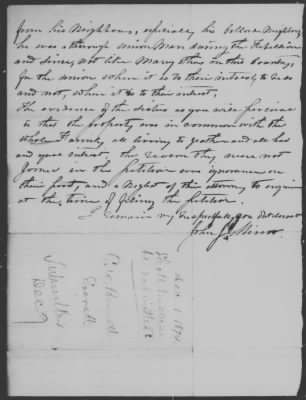 from his Neighbours, especially his Colored Neighbors
he was a thorough Union Man during the Rebellion
and Since, not like Many others in this County,
for the union when it is to their interest to be so
and not, when it is to their interest.
The evidence of the Sisters as you will perceive
is that the property was in common with the
whole Family all living together and all had
and equal interest the reason they were not
joined in the petition was ignorance on
their part, and a Neglect of the attorney to enquire
at the time of filing the petition.
I remain very Respectfully, you Obt Servant
John J.
Dec 1 1874
C. W.
Dec 7